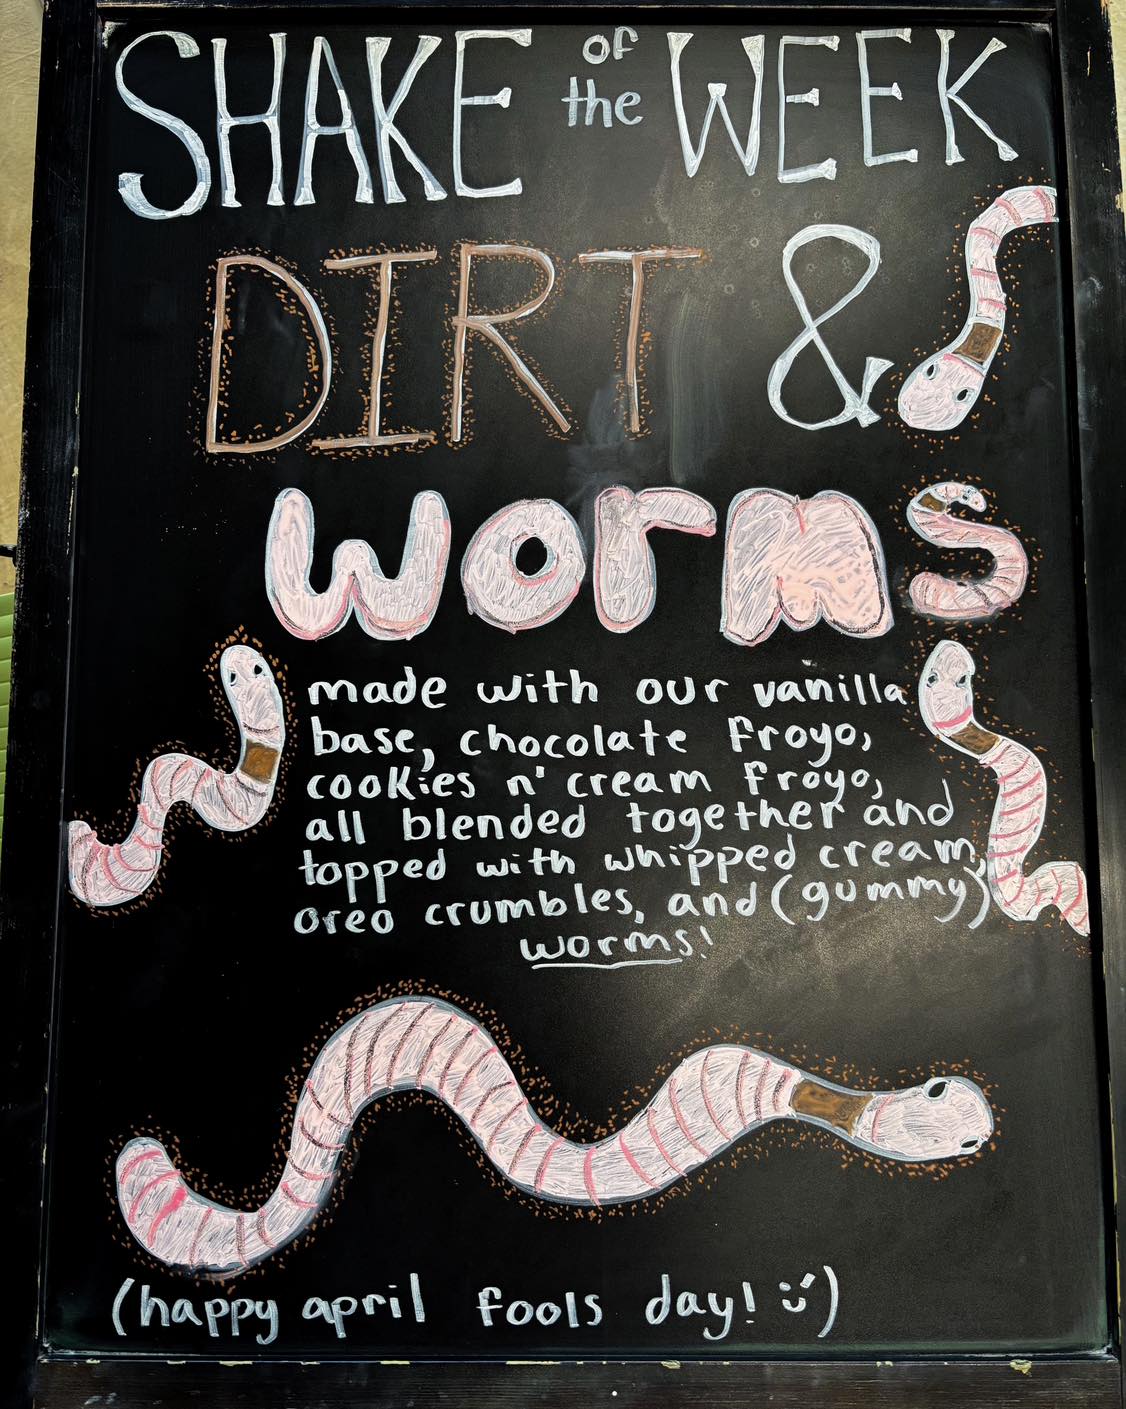 SHAKE of the WEEK
DIRT &
worms
made with our vanilla
base, chocolate froyo,
cookies n' cream froyo,
all blended together and
topped with whipped cream,
oreo crumbles, and (gummy)
worms!
(happy april fools day! :))